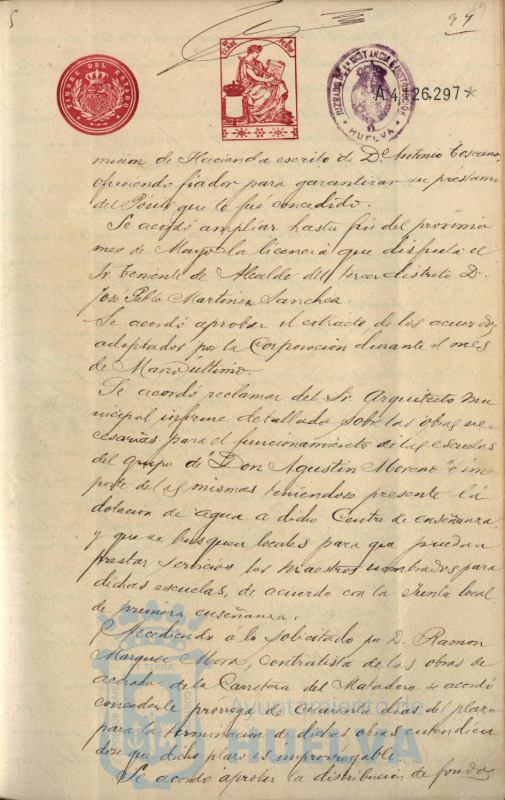 97
TIMBRE DEL ESTADO
CLASE
JUZGADO DE 1ª INSTANCIA E INSTRUCCIÓN
HUELVA
A.4.126,297*
misión de Hacienda escrito de Dn Antonio Toscano,
ofreciendo fiador para garantizar su prestamo
del Pósito que le fué concedido.
Se acordó ampliar hasta fin del proximo
mes de Mayo la licencia que disfruta el
Sr. Teniente de Alcalde del tercer distrito D.
José Pablo Martinez Sanchez.
Se acordó aprobar el extracto de los acuerdos
adoptados por la Corporacion durante el mes
de Marzo último.
Se acordó reclamar del Sr. Arquitecto mu
nicipal informe detallado sobre las obras ne
cesarias para el funcionamiento de las escuelas
del grupo de Don Agustin Moreno é im
porte de las mismas teniendose presente la
dotacion de agua a dicho Centro de enseñanza,
y que se busquen locales para que puedan
prestar servicios los maestros nombrados para
dichas escuelas, de acuerdo con la Junta local
de primera enseñanza.
Accediendo á lo solicitado por D. Ramon
Marquez Mora, contratista de las obras de
acerado de la Carretera del Matadero se acordó
concederle prorroga de cuarenta dias del plazo
para la terminacion de dichas obras entendien
dose que dicho plazo es improrrogable.
Se acordó aprobar la distribucion de fondos
Ayuntamiento de
HUELVA